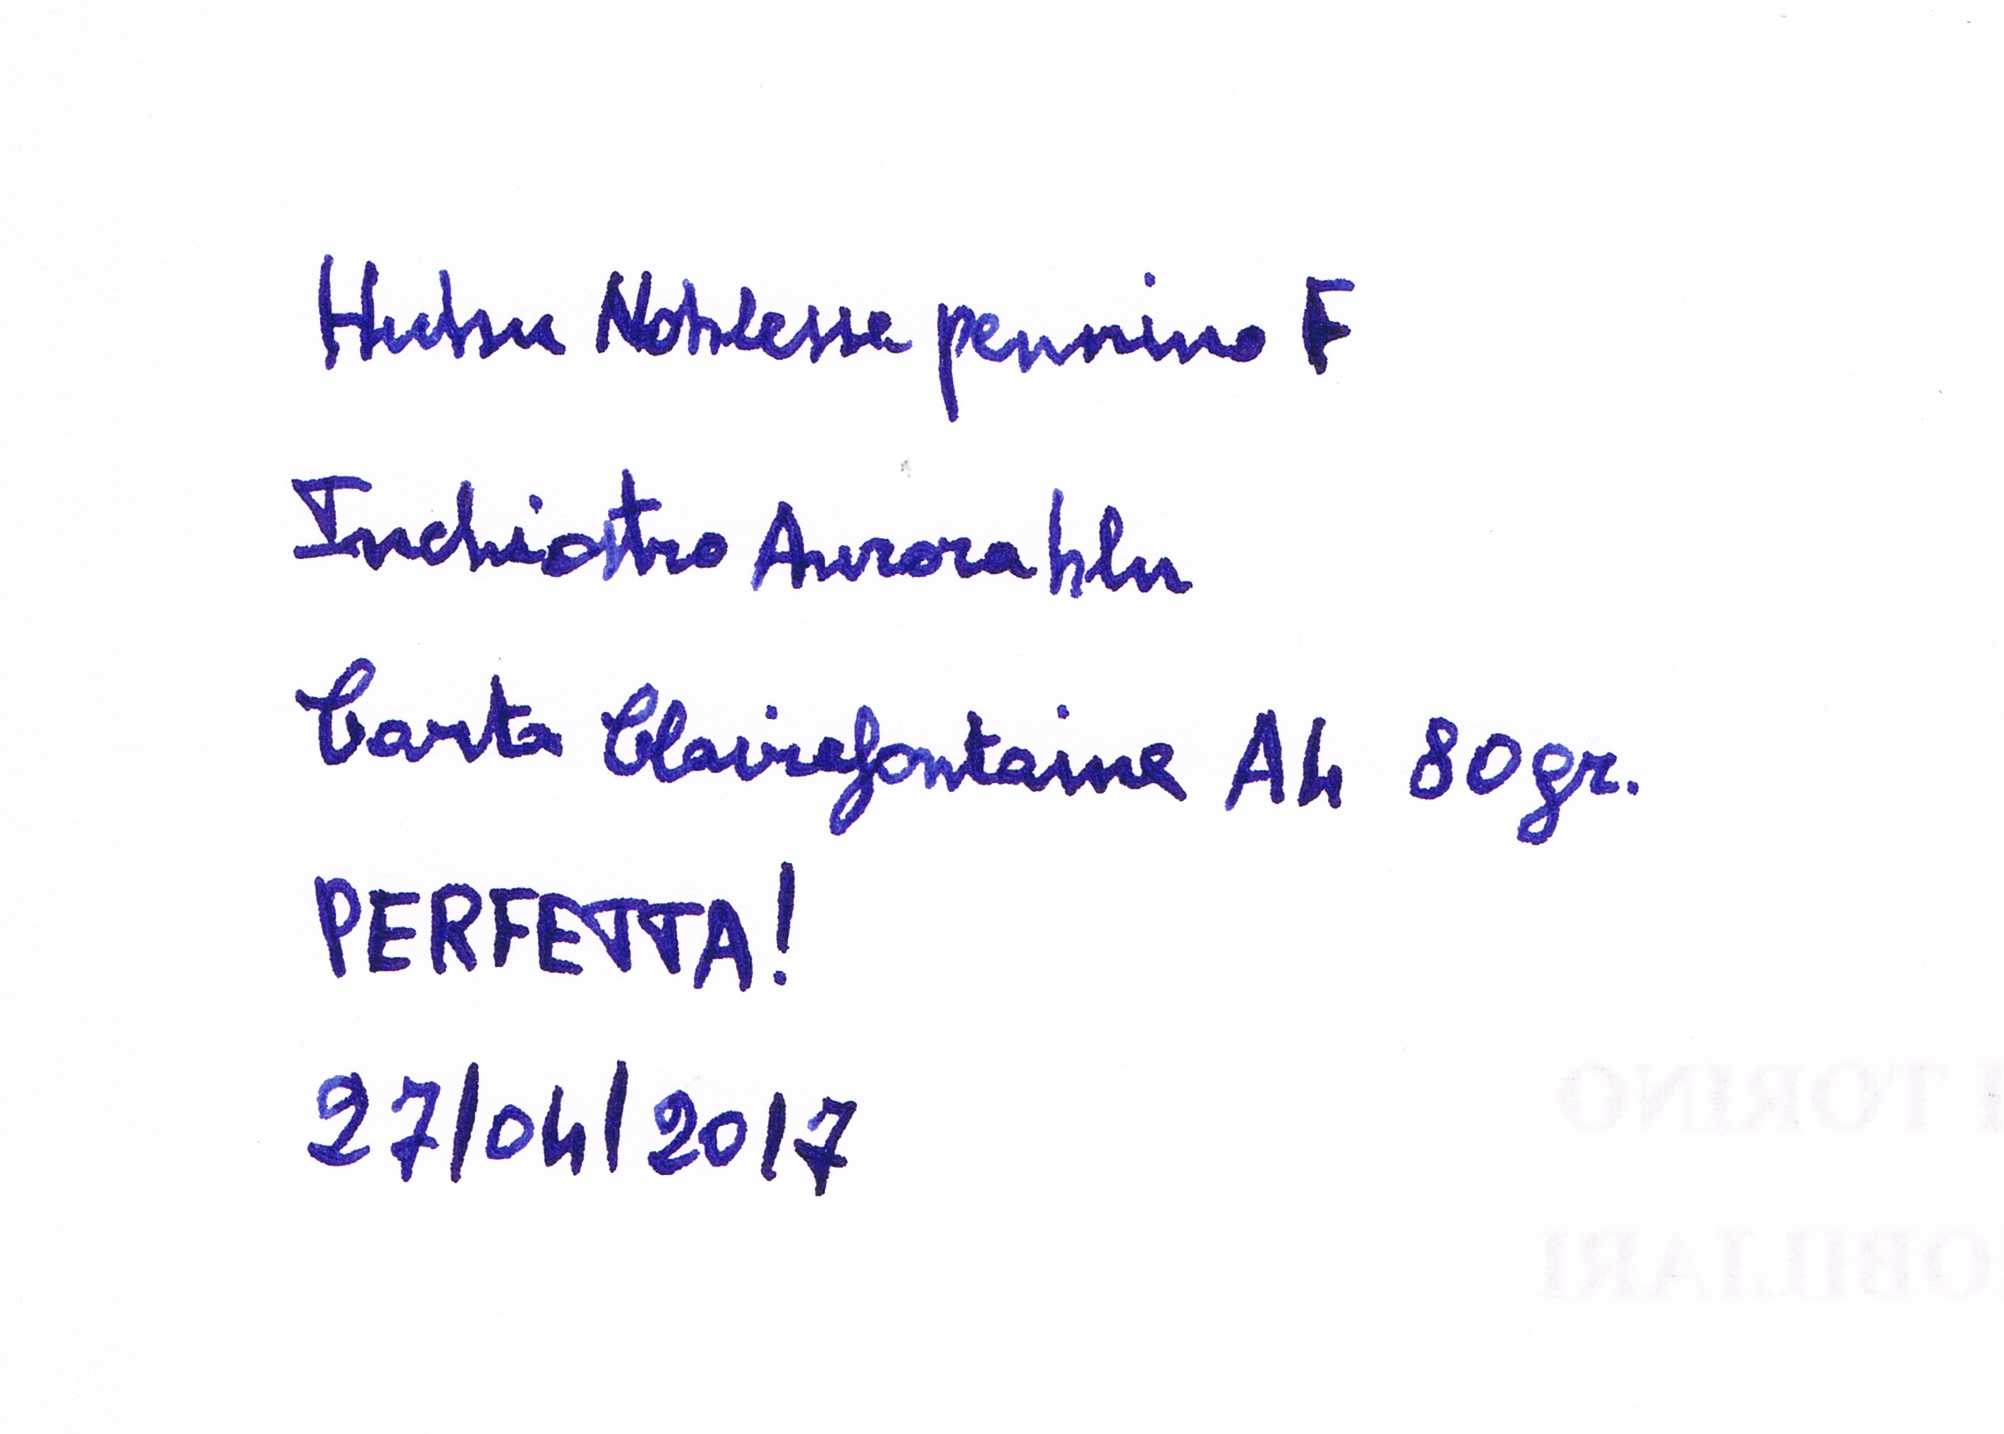 Hubsu Noblesse pennino F
Inchiostro Aurora blu
Carta Clairefontaine A4 80gr.
PERFETTA!
27/04/2017
I TORINO
OBILIARI